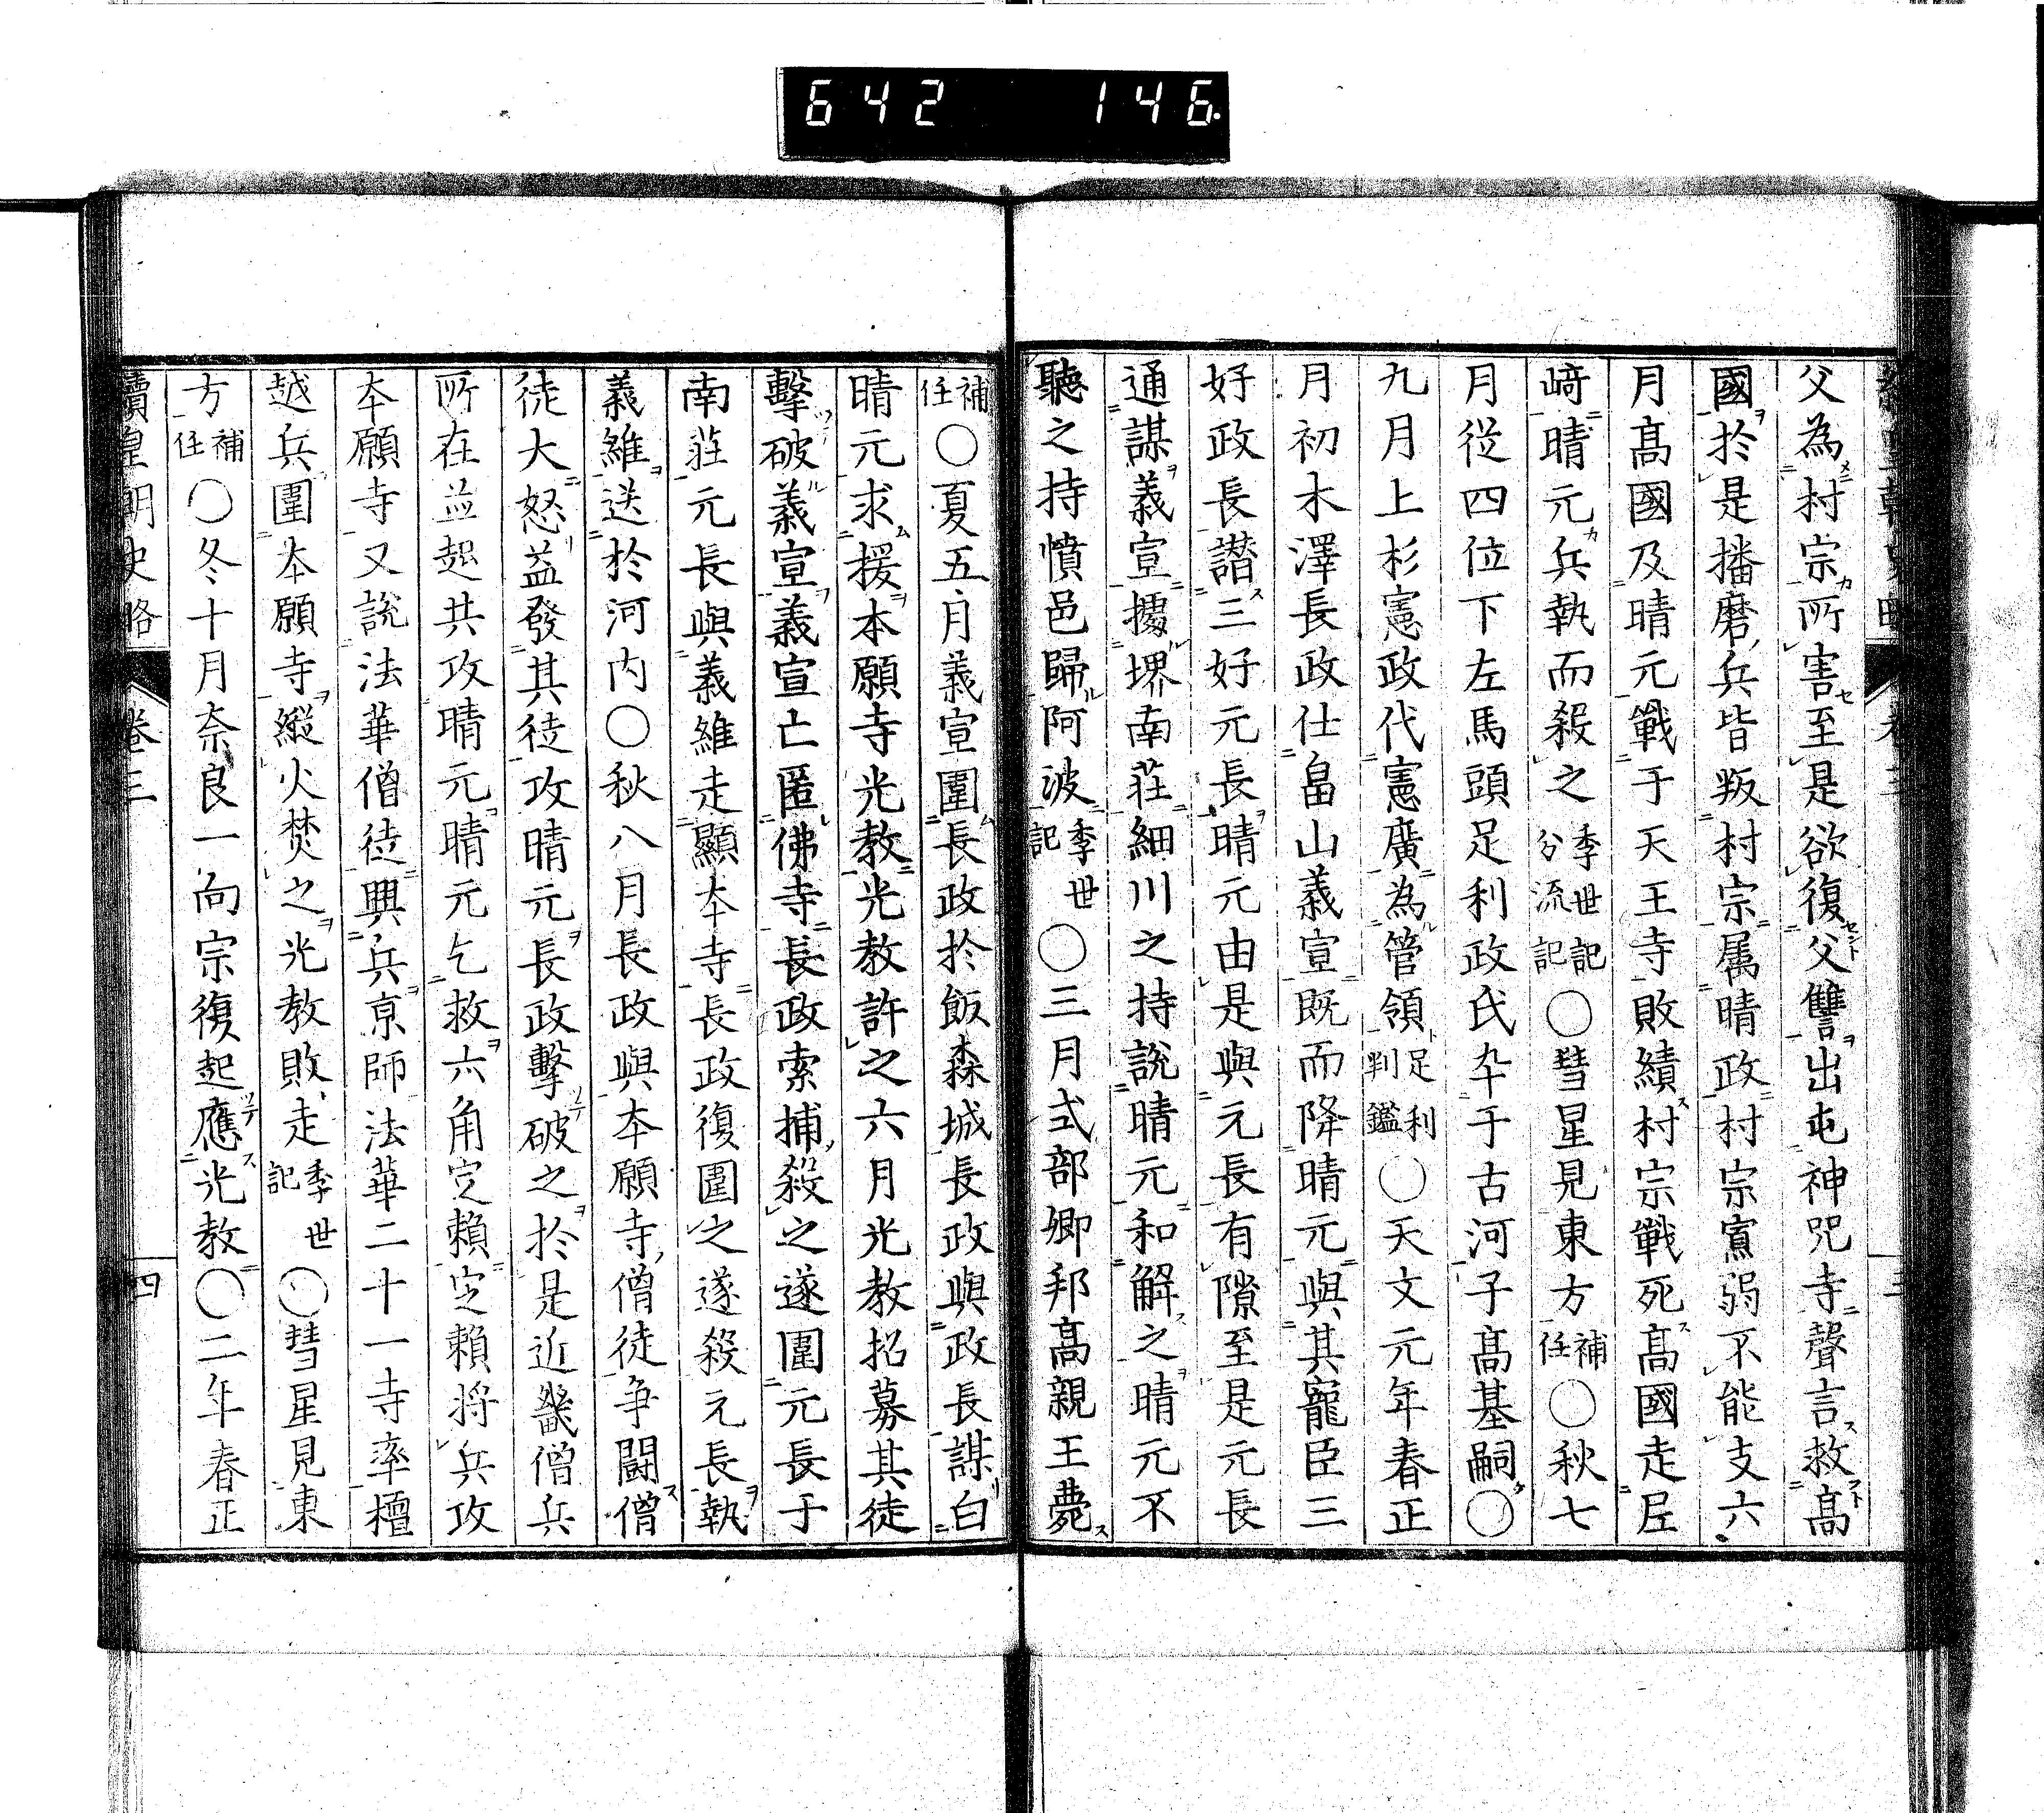 642 146
父為村宗所害至是欲復父讐出屯神咒寺聲言救髙
國於是播磨兵皆叛村宗属晴政村宗寡弱不能支六
月髙國及晴元戰于天王寺敗績村宗戰死髙國走尼
﨑晴元兵執而殺之季世記分流記〇彗星見東方補任〇秋七
月從四位下左馬頭足利政氏卒于古河子髙基嗣〇
九月上杉憲政代憲廣為管領足利判鑑〇天文元年春正
月初木澤長政仕畠山義宣既而降晴元與其寵臣三
好政長譖三好元長晴元由是與元長有隙至是元長
通謀義宣據堺南莊細川之持說晴元和解之晴元不
聽之持憤邑歸阿波季世記〇三月式部卿邦髙親王薨
補任〇夏五月義宣圍長政於飯森城長政與政長謀白
晴元求援本願寺光教光教許之六月光教招募其徒
擊破義宣義宣亡匿佛寺長政索捕殺之遂圍元長于
南莊元長與義維走顯本寺長政復圍之遂殺元長執
義維送於河内〇秋八月長政與本願寺僧徒争鬪僧
徒大怒益發其徒攻晴元長政擊破之於是近畿僧兵
所在並起共攻晴元晴元乞救六角定賴定賴将兵攻
本願寺又說法華僧徒興兵京師法華二十一寺率檀
越兵圍本願寺縱火焚之光教敗走季世記〇彗星見東
方補任〇冬十月奈良一向宗復起應光教〇二年春正
續皇朝史略 卷三 四